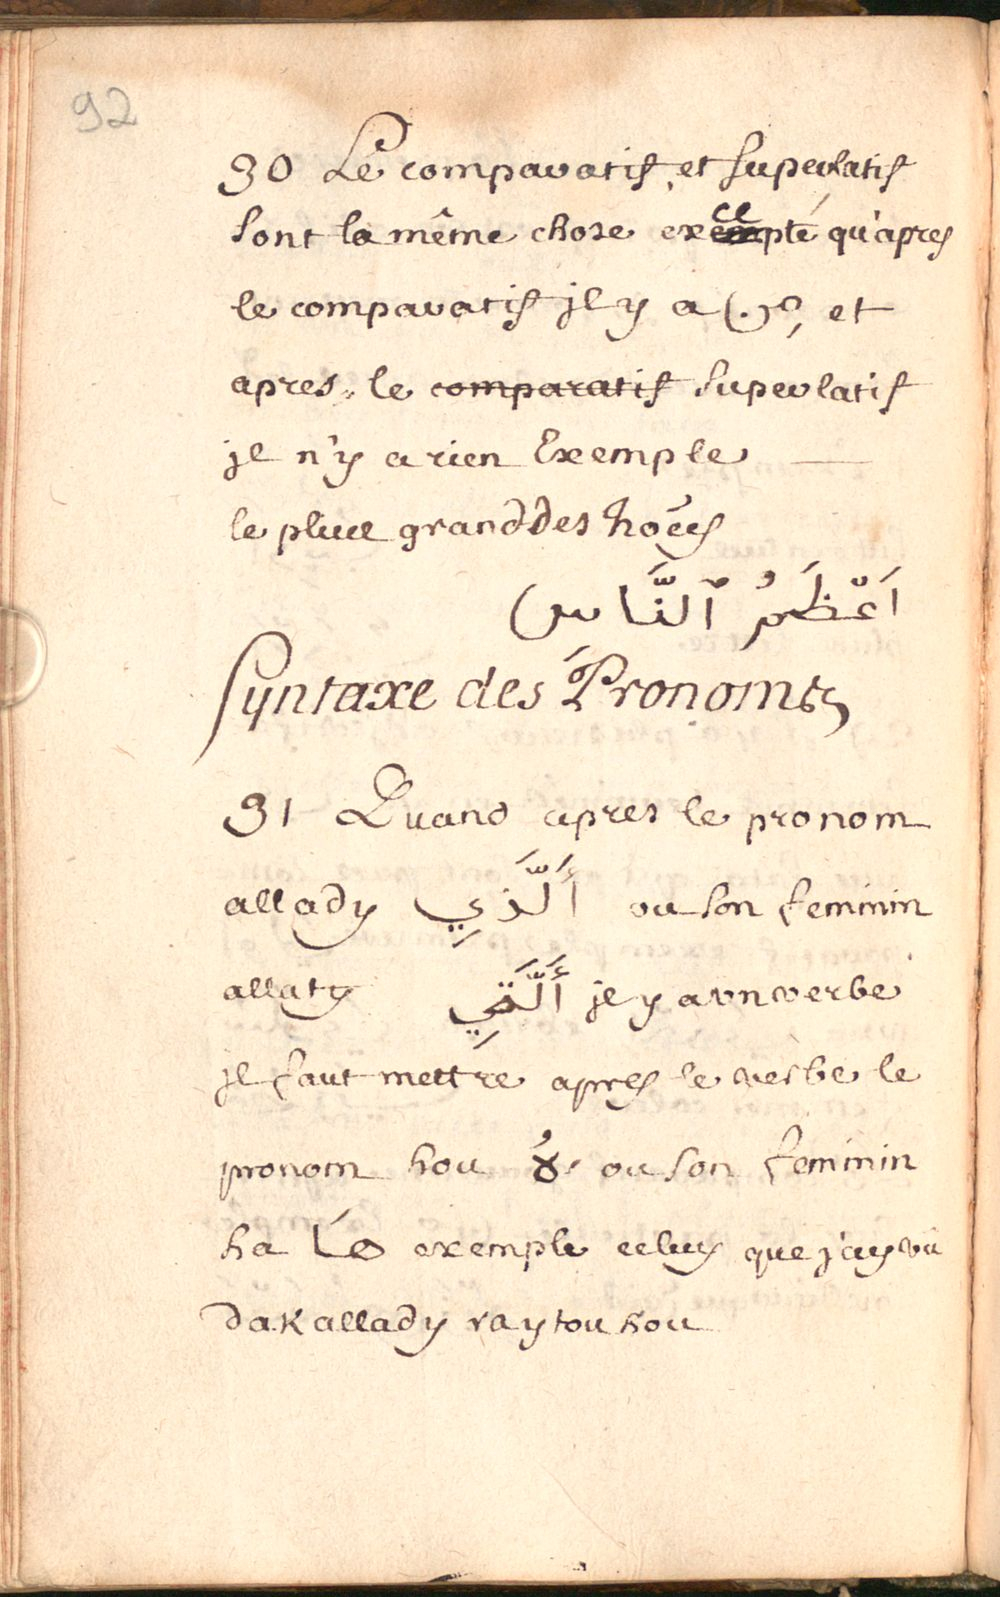 92
30 Le comparatif et superlatif
sont la même chose excepté qu'apres
le comparatif jl y a مِن et
apres le comparatif superlatif
jl n'y a rien Exemple
le plus grand des hoẽs
اَعْظَمُ ٱلنَّاس
Syntaxe des Pronoms
31 Quand apres le pronom
allady أَلَّذِي ou son feminin
allaty أَلَّتِي jl y a vn verbe
jl faut mettre apres le verbe le
pronom hou هُ ou son feminin
ha هَا exemple celuy que j'ay vû
dak allady raytouhou